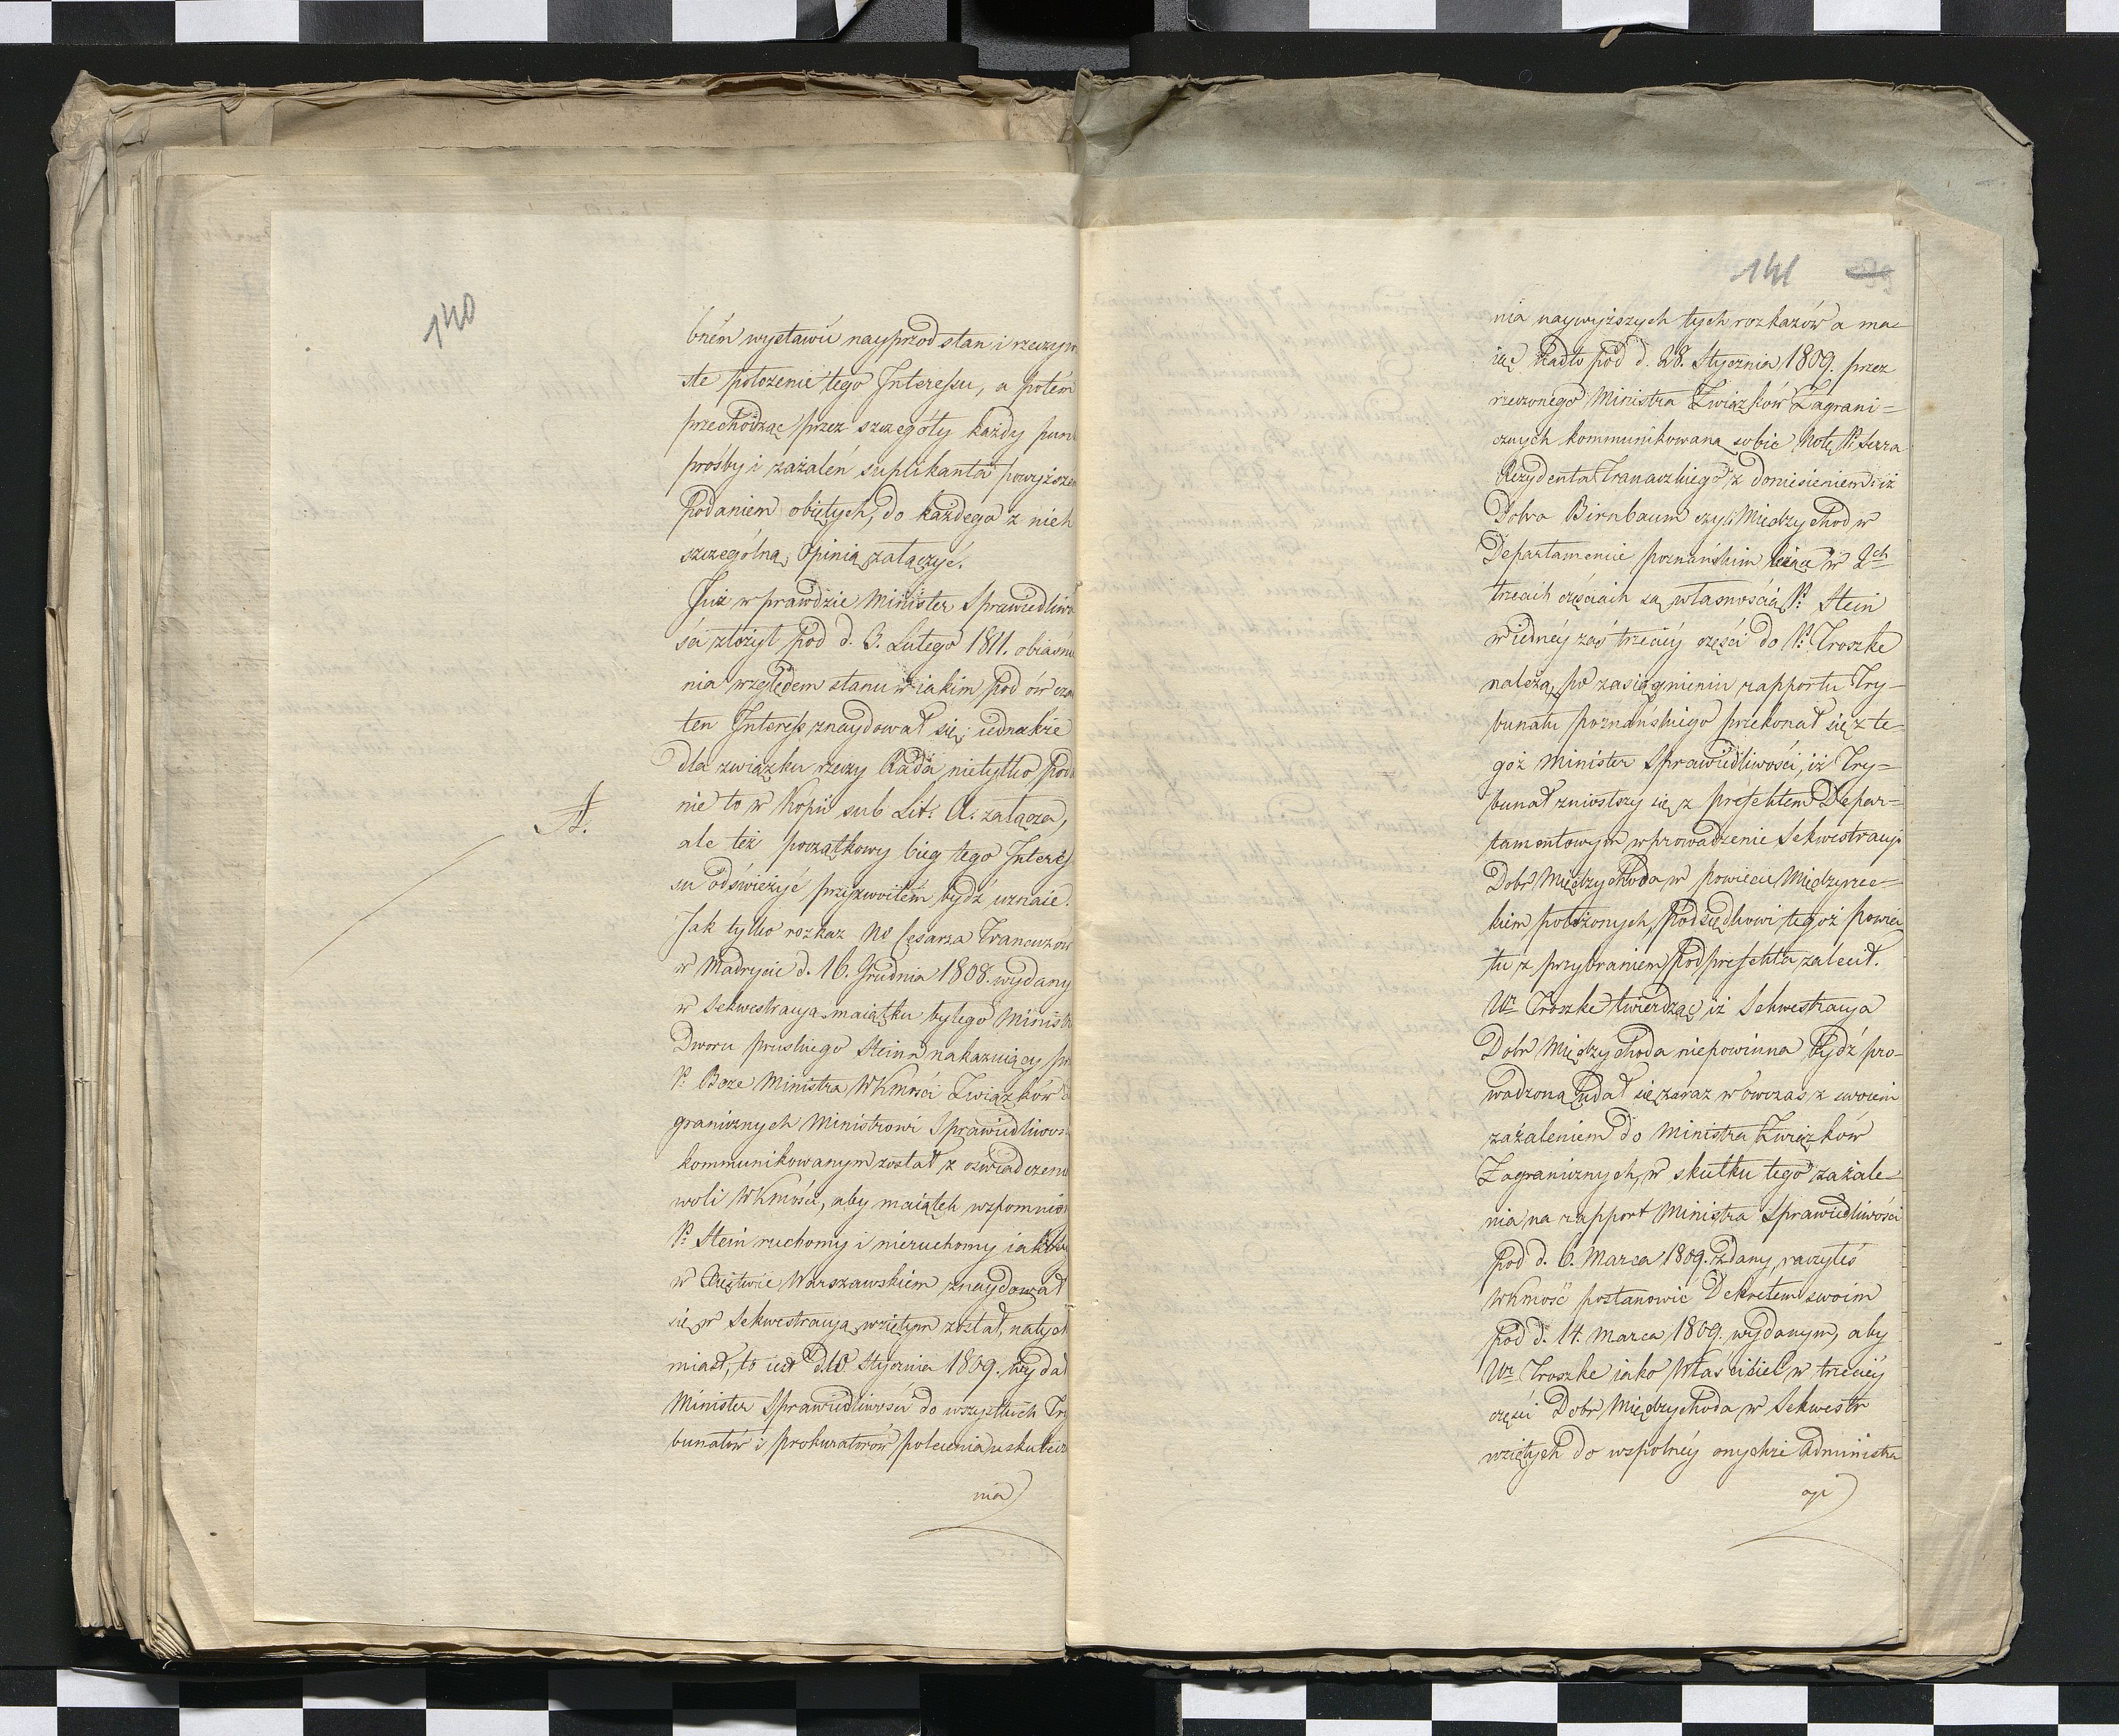 140
bném wystawić nayprzod stan i rzeczyw
ste położenie tego Interessu, a potém
przechodząc przez szczegóły każdy pun
prośby i zażaleń suplikanta powyższem
Podaniem obiętych, do każdego z nich
szczególną Opinią załączyć.
Już wprawdzie Minister Sprawiedliwo
ści złożył pod d. 3. Lutego 1811. obiaśni
nia względem stanu w iakim pod ów cza
ten Interess znaydował się, iednakże
dla związku rzeczy Rada nietylko Poda
nie to w Kopii sub Lit: A. załącza,
A.
ale też początkowy bieg tego Interes
su odświeżyć przyzwoitém bydź uznaie.
Jak tylko rozkaz NP Cesarza Francuzów
w Madrycie d. 16. Grudnia 1808. wydany
w Sekwestracyą maiątku byłego Minist
Dworu pruskiego Stein nakazuiący prz
P. Boze Ministra WKMości Związków Za
granicznych Ministrowi Sprawiedliwoś
kommunikowanym został z oświadczeni
woli WKMości, aby maiątek wspomnio
P. Stein ruchomy i nieruchomy iakiby
w Xięstwie Warszawskiem znaydował
się w Sekwestracyą wziętym został, natych
miast, to iest d. 10 Stycznia 1809. wydał
Minister Sprawiedliwości do wszystkich Try
bunałów i prokuratorów polecenia uskutecz
nia
141
nia naywyższych tych rozkazów a ma=
iąc nadto pod d. 28. Stycznia 1809. przez
rzeczonego Ministra Związków Zagrani=
cznych kommunikowaną sobie Notę P. Serra
Rezydenta Francuzkiego z doniesieniem: iż
Dobra Birnbaum czyli Międzychod w
Departamencie poznańskim leżące w 2ch
trzecich częściach są własnością P. Stein
w iednéy zaś trzeciéy części do P. Troszke
należą, po zasiągnieniu rapportu Try-
bunału poznańskiego przekonał się z te-
goż Minister Sprawiedliwości, iż Try=
bunał zniosłszy się z prefektem Depar=
tamentowym wprowadzenie Sekwestracyi
Dobr Międzychoda w powiecie Międzyrzec=
kim położonych, Podsędkowi tegoż powia
tu z przybraniem Podprefekta zalecił.
Ur. Troszke twierdząc iż Sekwestracya
Dobr Międzychoda niepowinna bydź pro-
wadzoną udał się zaraz wówczas z swoiem
zażaleniem do Ministra Związków
Zagranicznych, w skutku tego zażale=
nia na rapport Ministra Sprawiedliwości
pod d. 6. Marca 1809. zdany, raczyłeś
WKMość postanowić Dekretem swoim
pod d. 14. Marca 1809. wydanym, aby
Ur. Troszke iako Właściciel w trzeciéy
części Dobr Międzychoda w Sekwestr
wziętych do wspolnéy onychże Administra
cyi